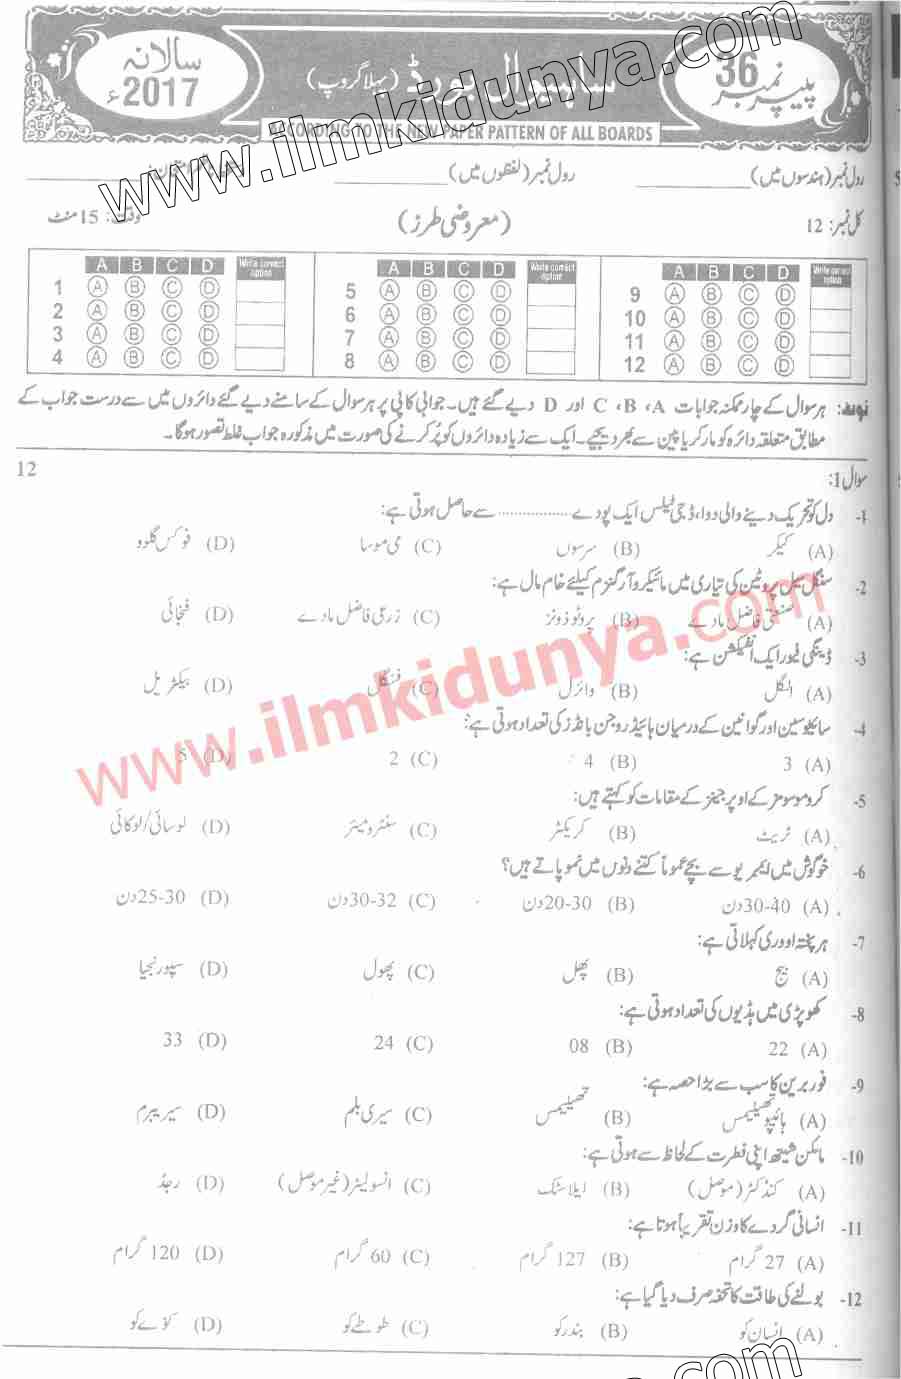 سالانہ 2017ء
ساہیوال بورڈ (پہلا گروپ)
پیپر نمبر 36
ACCORDING TO THE NEW PAPER PATTERN OF ALL BOARDS
www.ilmkidunya.com
رول نمبر (ہندسوں میں) ____________ رول نمبر (لفظوں میں) ____________
کل نمبر: 12 (معروضی طرز) وقت: 15 منٹ
A B C D Write correct option A B C D Write correct option A B C D Write correct option
1 A B C D 5 A B C D 9 A B C D
2 A B C D 6 A B C D 10 A B C D
3 A B C D 7 A B C D 11 A B C D
4 A B C D 8 A B C D 12 A B C D
نوٹ: ہر سوال کے چار ممکنہ جوابات A، B، C اور D دیے گئے ہیں۔ جوابی کاپی پر ہر سوال کے سامنے دیے گئے دائروں میں سے درست جواب کے
مطابق متعلقہ دائرہ کو مارکر یا پین سے بھر دیجیے۔ ایک سے زیادہ دائروں کو پُر کرنے کی صورت میں مذکورہ جواب غلط تصور ہوگا۔
سوال 1: 12
1- دل کو تحریک دینے والی دوا، ڈجی ٹیلس ایک پودے ................ سے حاصل ہوتی ہے:
(A) کیکر (B) سرسوں (C) می موسا (D) فوکس گلوو
2- سنگل سیل پروٹین کی تیاری میں مائیکرو آرگنزم کیلئے خام مال ہے:
(A) صنعتی فاضل مادے (B) پروٹوزونز (C) زرعی فاضل مادے (D) فنجائی
3- ڈینگی فیور ایک انفیکشن ہے:
(A) الگل (B) وائرل (C) فنگل (D) بیکٹیریل
4- سائیٹوسین اور گوانین کے درمیان ہائیڈروجن بانڈز کی تعداد ہوتی ہے:
(A) 3 (B) 4 (C) 2 (D) 5
5- کروموسومز کے اوپر جینز کے مقامات کو کہتے ہیں:
(A) ٹریٹ (B) کریکٹر (C) سنٹرومیئر (D) لوسائی/لوکائی
6- خرگوش میں ایمبریو سے بچے عموماً کتنے دنوں میں نمو پاتے ہیں؟
(A) 30-40 دن (B) 20-30 دن (C) 30-32 دن (D) 25-30 دن
7- ہر پختہ اووری کہلاتی ہے:
(A) بیج (B) پھل (C) پھول (D) سپورنجیا
8- کھوپڑی میں ہڈیوں کی تعداد ہوتی ہے:
(A) 22 (B) 08 (C) 24 (D) 33
9- فور برین کا سب سے بڑا حصہ ہے:
(A) ہائپوتھیلیمس (B) تھیلیمس (C) سیری بلم (D) سیریبرم
10- مائلن شیتھ اپنی فطرت کے لحاظ سے ہوتی ہے:
(A) کنڈکٹر (موصل) (B) ایلاسٹک (C) انسولیٹر (غیر موصل) (D) رجڈ
11- انسانی گردے کا وزن تقریباً ہوتا ہے:
(A) 27 گرام (B) 127 گرام (C) 60 گرام (D) 120 گرام
12- بولنے کی طاقت کا تحفہ صرف دیا گیا ہے:
(A) انسان کو (B) بندر کو (C) طوطے کو (D) کوّے کو
www.ilmkidunya.com